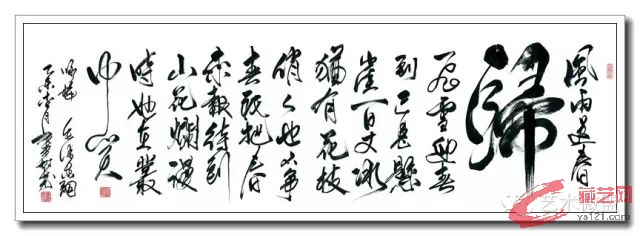 風雨送春
歸
飛雪迎春
到已是懸
崖百丈冰
猶有花枝
俏俏也不爭
春祇把春
來報待到
山花爛漫
時她在叢
中笑
咏梅 毛澤東詞
乙未
艺术
艺网
ys121.com